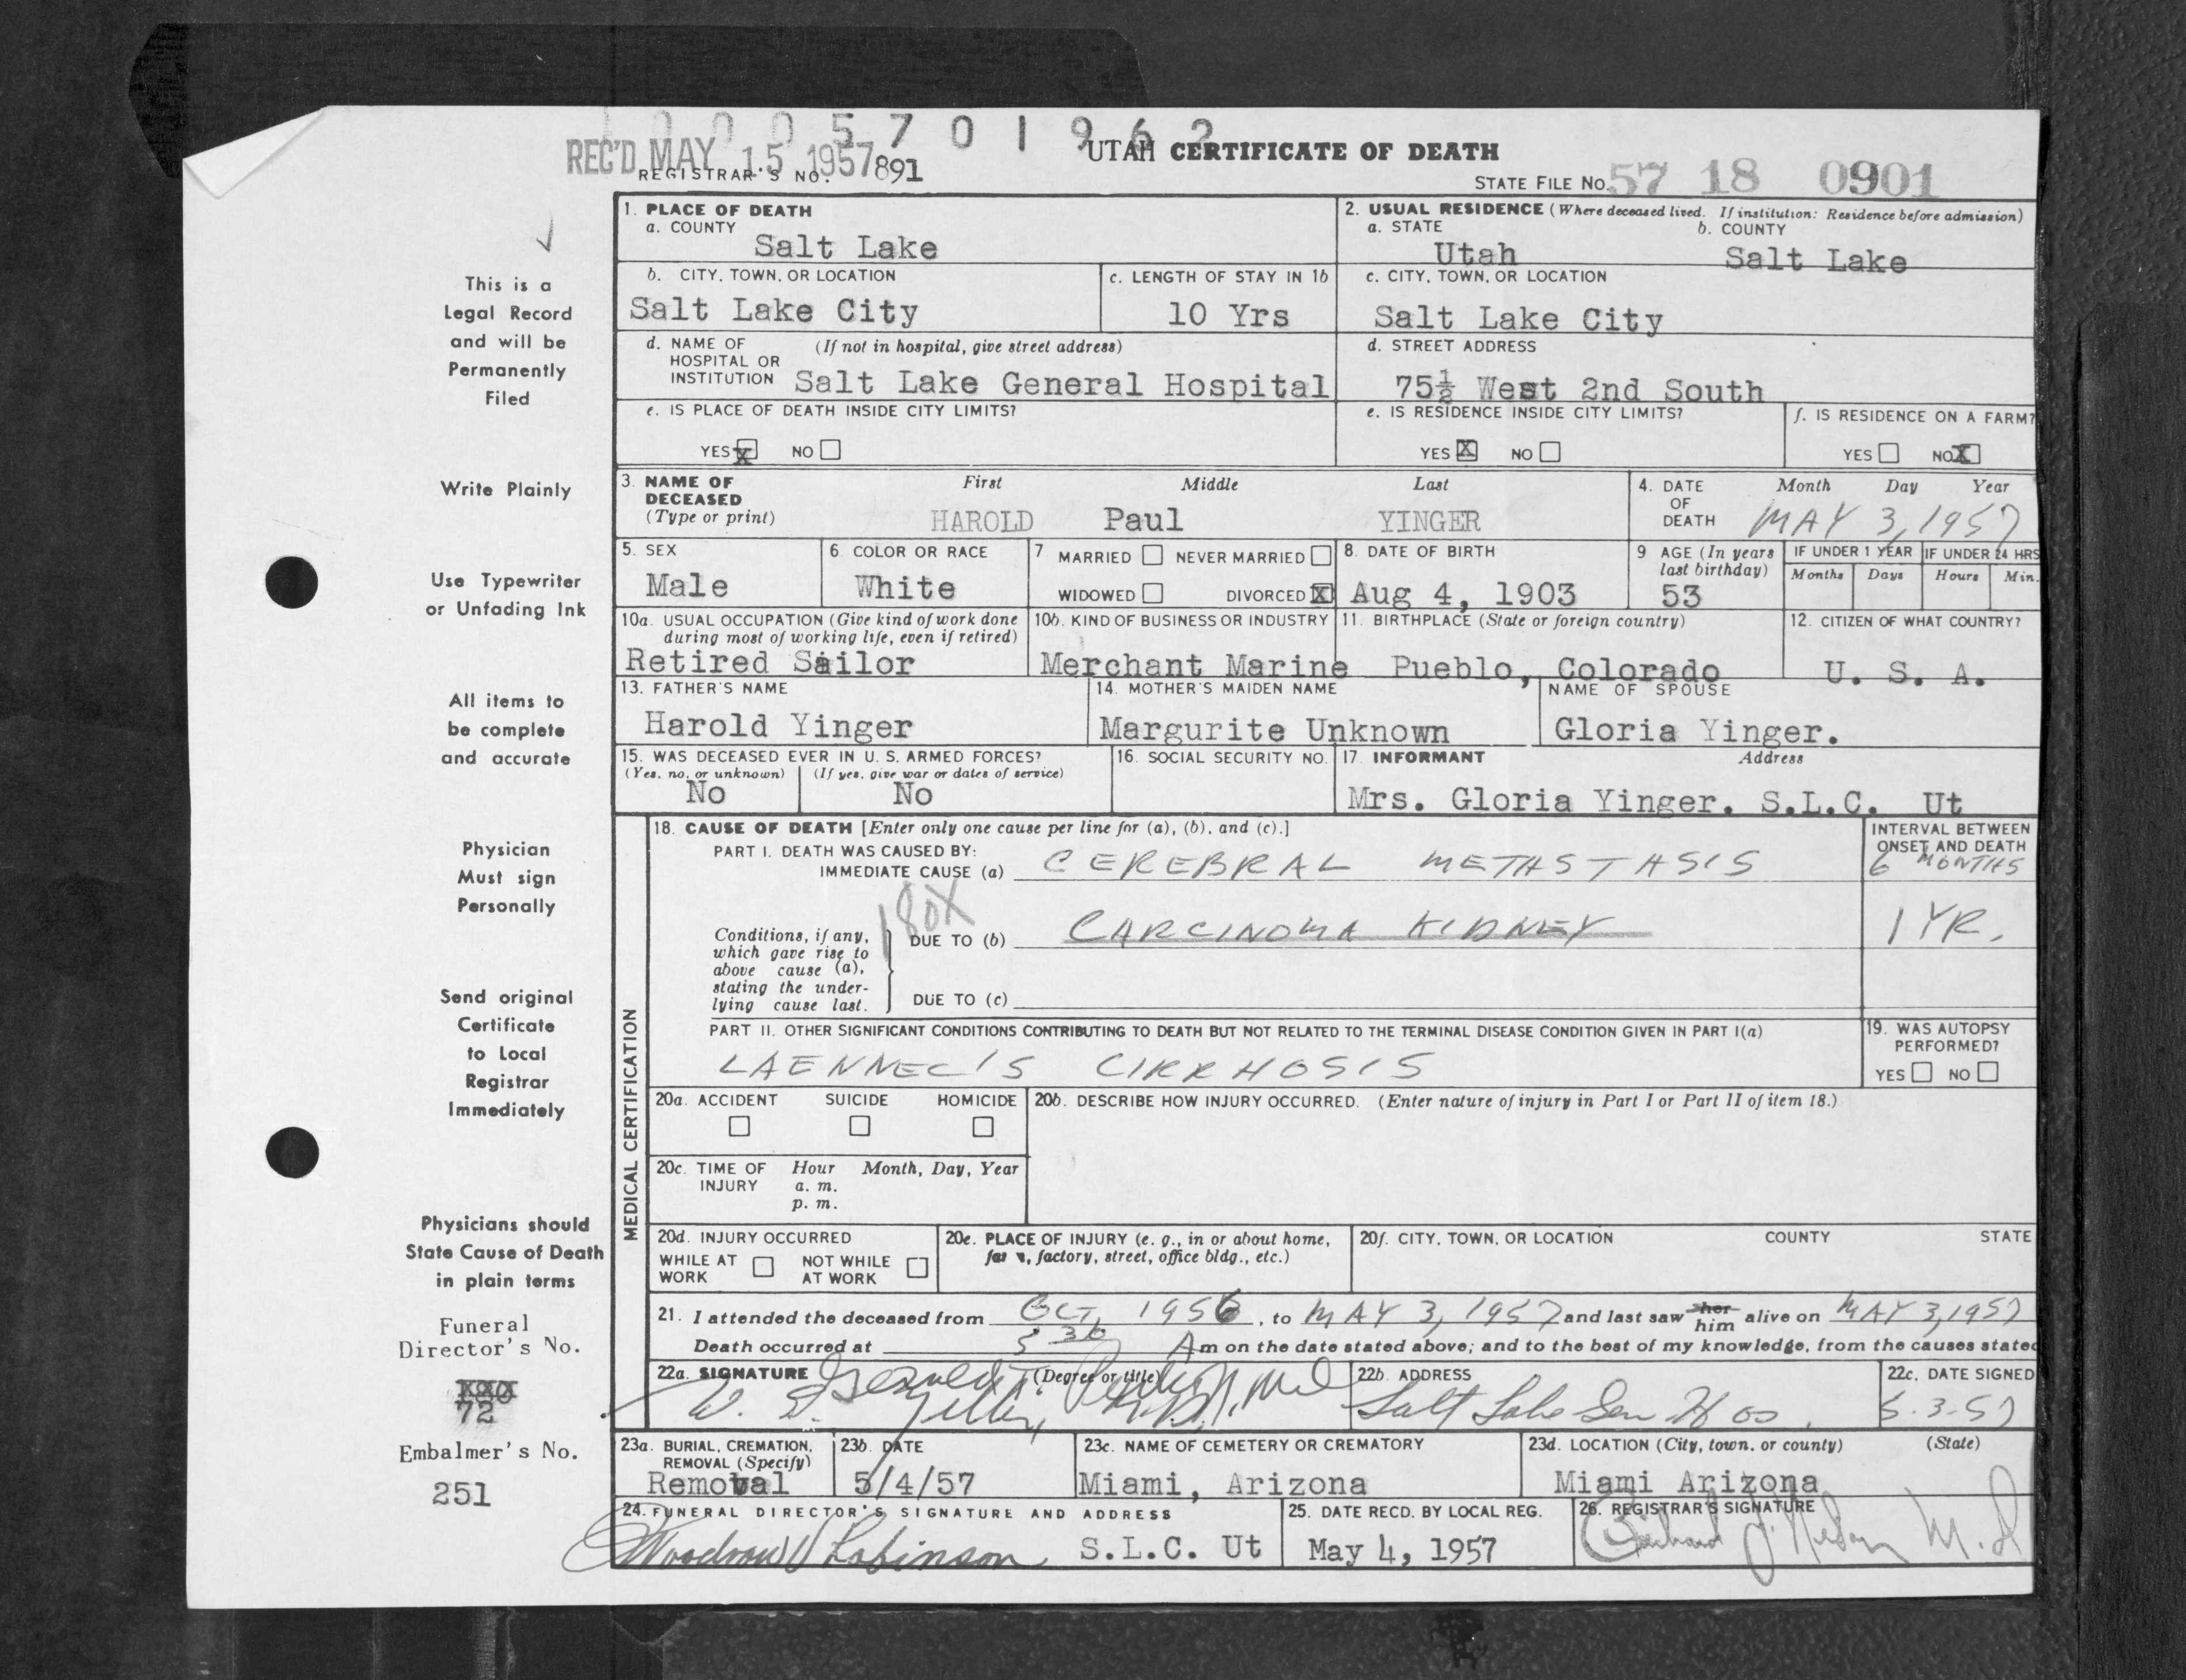 0 0 0 5 7 0 1 9 6 2
REC'D MAY 15 1957
UTAH CERTIFICATE OF DEATH
REGISTRAR'S NO. 891
STATE FILE NO. 57 18 0901
This is a
Legal Record
and will be
Permanently
Filed
Write Plainly
Use Typewriter
or Unfading Ink
All items to
be complete
and accurate
Physician
Must sign
Personally
Send original
Certificate
to Local
Registrar
Immediately
Physicians should
State Cause of Death
in plain terms
Funeral
Director's No.
72
Embalmer's No.
251
1. PLACE OF DEATH
a. COUNTY
Salt Lake
2. USUAL RESIDENCE (Where deceased lived. If institution: Residence before admission)
a. STATE b. COUNTY
Utah Salt Lake
b. CITY, TOWN, OR LOCATION
Salt Lake City
c. LENGTH OF STAY IN 1b
10 Yrs
c. CITY, TOWN, OR LOCATION
Salt Lake City
d. NAME OF (If not in hospital, give street address)
HOSPITAL OR
INSTITUTION Salt Lake General Hospital
d. STREET ADDRESS
75½ West 2nd South
e. IS PLACE OF DEATH INSIDE CITY LIMITS?
YES X NO
e. IS RESIDENCE INSIDE CITY LIMITS?
YES X NO
f. IS RESIDENCE ON A FARM?
YES NO X
3. NAME OF DECEASED (Type or print)
First Middle Last
HAROLD Paul YINGER
4. DATE OF DEATH
Month Day Year
MAY 3, 1957
5. SEX
Male
6. COLOR OR RACE
White
7 MARRIED NEVER MARRIED
WIDOWED DIVORCED X
8. DATE OF BIRTH
Aug 4, 1903
9 AGE (In years
last birthday)
53
IF UNDER 1 YEAR IF UNDER 24 HRS
Months Days Hours Min.
10a. USUAL OCCUPATION (Give kind of work done
during most of working life, even if retired)
Retired Sailor
10b. KIND OF BUSINESS OR INDUSTRY
Merchant Marine
11. BIRTHPLACE (State or foreign country)
Pueblo, Colorado
12. CITIZEN OF WHAT COUNTRY?
U. S. A.
13. FATHER'S NAME
Harold Yinger
14. MOTHER'S MAIDEN NAME
Margurite Unknown
NAME OF SPOUSE
Gloria Yinger.
15. WAS DECEASED EVER IN U. S. ARMED FORCES?
(Yes, no, or unknown) (If yes, give war or dates of service)
No No
16. SOCIAL SECURITY NO.
17. INFORMANT Address
Mrs. Gloria Yinger. S.L.C. Ut
MEDICAL CERTIFICATION
18. CAUSE OF DEATH [Enter only one cause per line for (a), (b), and (c).]
INTERVAL BETWEEN
ONSET AND DEATH
PART I. DEATH WAS CAUSED BY:
IMMEDIATE CAUSE (a) CEREBRAL METASTASIS 6 MONTHS
180X
Conditions, if any,
which gave rise to
above cause (a),
stating the under-
lying cause last.
DUE TO (b) CARCINOMA KIDNEY 1 YR.
DUE TO (c)
PART II. OTHER SIGNIFICANT CONDITIONS CONTRIBUTING TO DEATH BUT NOT RELATED TO THE TERMINAL DISEASE CONDITION GIVEN IN PART I(a)
LAENNEC'S CIRRHOSIS
19. WAS AUTOPSY
PERFORMED?
YES NO
20a. ACCIDENT SUICIDE HOMICIDE
20b. DESCRIBE HOW INJURY OCCURRED. (Enter nature of injury in Part I or Part II of item 18.)
20c. TIME OF INJURY Hour Month, Day, Year
a. m.
p. m.
20d. INJURY OCCURRED
WHILE AT WORK NOT WHILE AT WORK
20e. PLACE OF INJURY (e. g., in or about home,
farm, factory, street, office bldg., etc.)
20f. CITY, TOWN, OR LOCATION COUNTY STATE
21. I attended the deceased from OCT, 1956, to MAY 3, 1957 and last saw her him alive on MAY 3, 1957
Death occurred at 5 30 Am on the date stated above; and to the best of my knowledge, from the causes stated
22a. SIGNATURE (Degree or title)
22b. ADDRESS
Salt Lake Gen Hos.
22c. DATE SIGNED
5.3.57
23a. BURIAL, CREMATION,
REMOVAL (Specify)
Removal
23b. DATE
5/4/57
23c. NAME OF CEMETERY OR CREMATORY
Miami, Arizona
23d. LOCATION (City, town, or county) (State)
Miami Arizona
24. FUNERAL DIRECTOR'S SIGNATURE AND ADDRESS
Woodrow Robinson S.L.C. Ut
25. DATE RECD. BY LOCAL REG.
May 4, 1957
26. REGISTRAR'S SIGNATURE